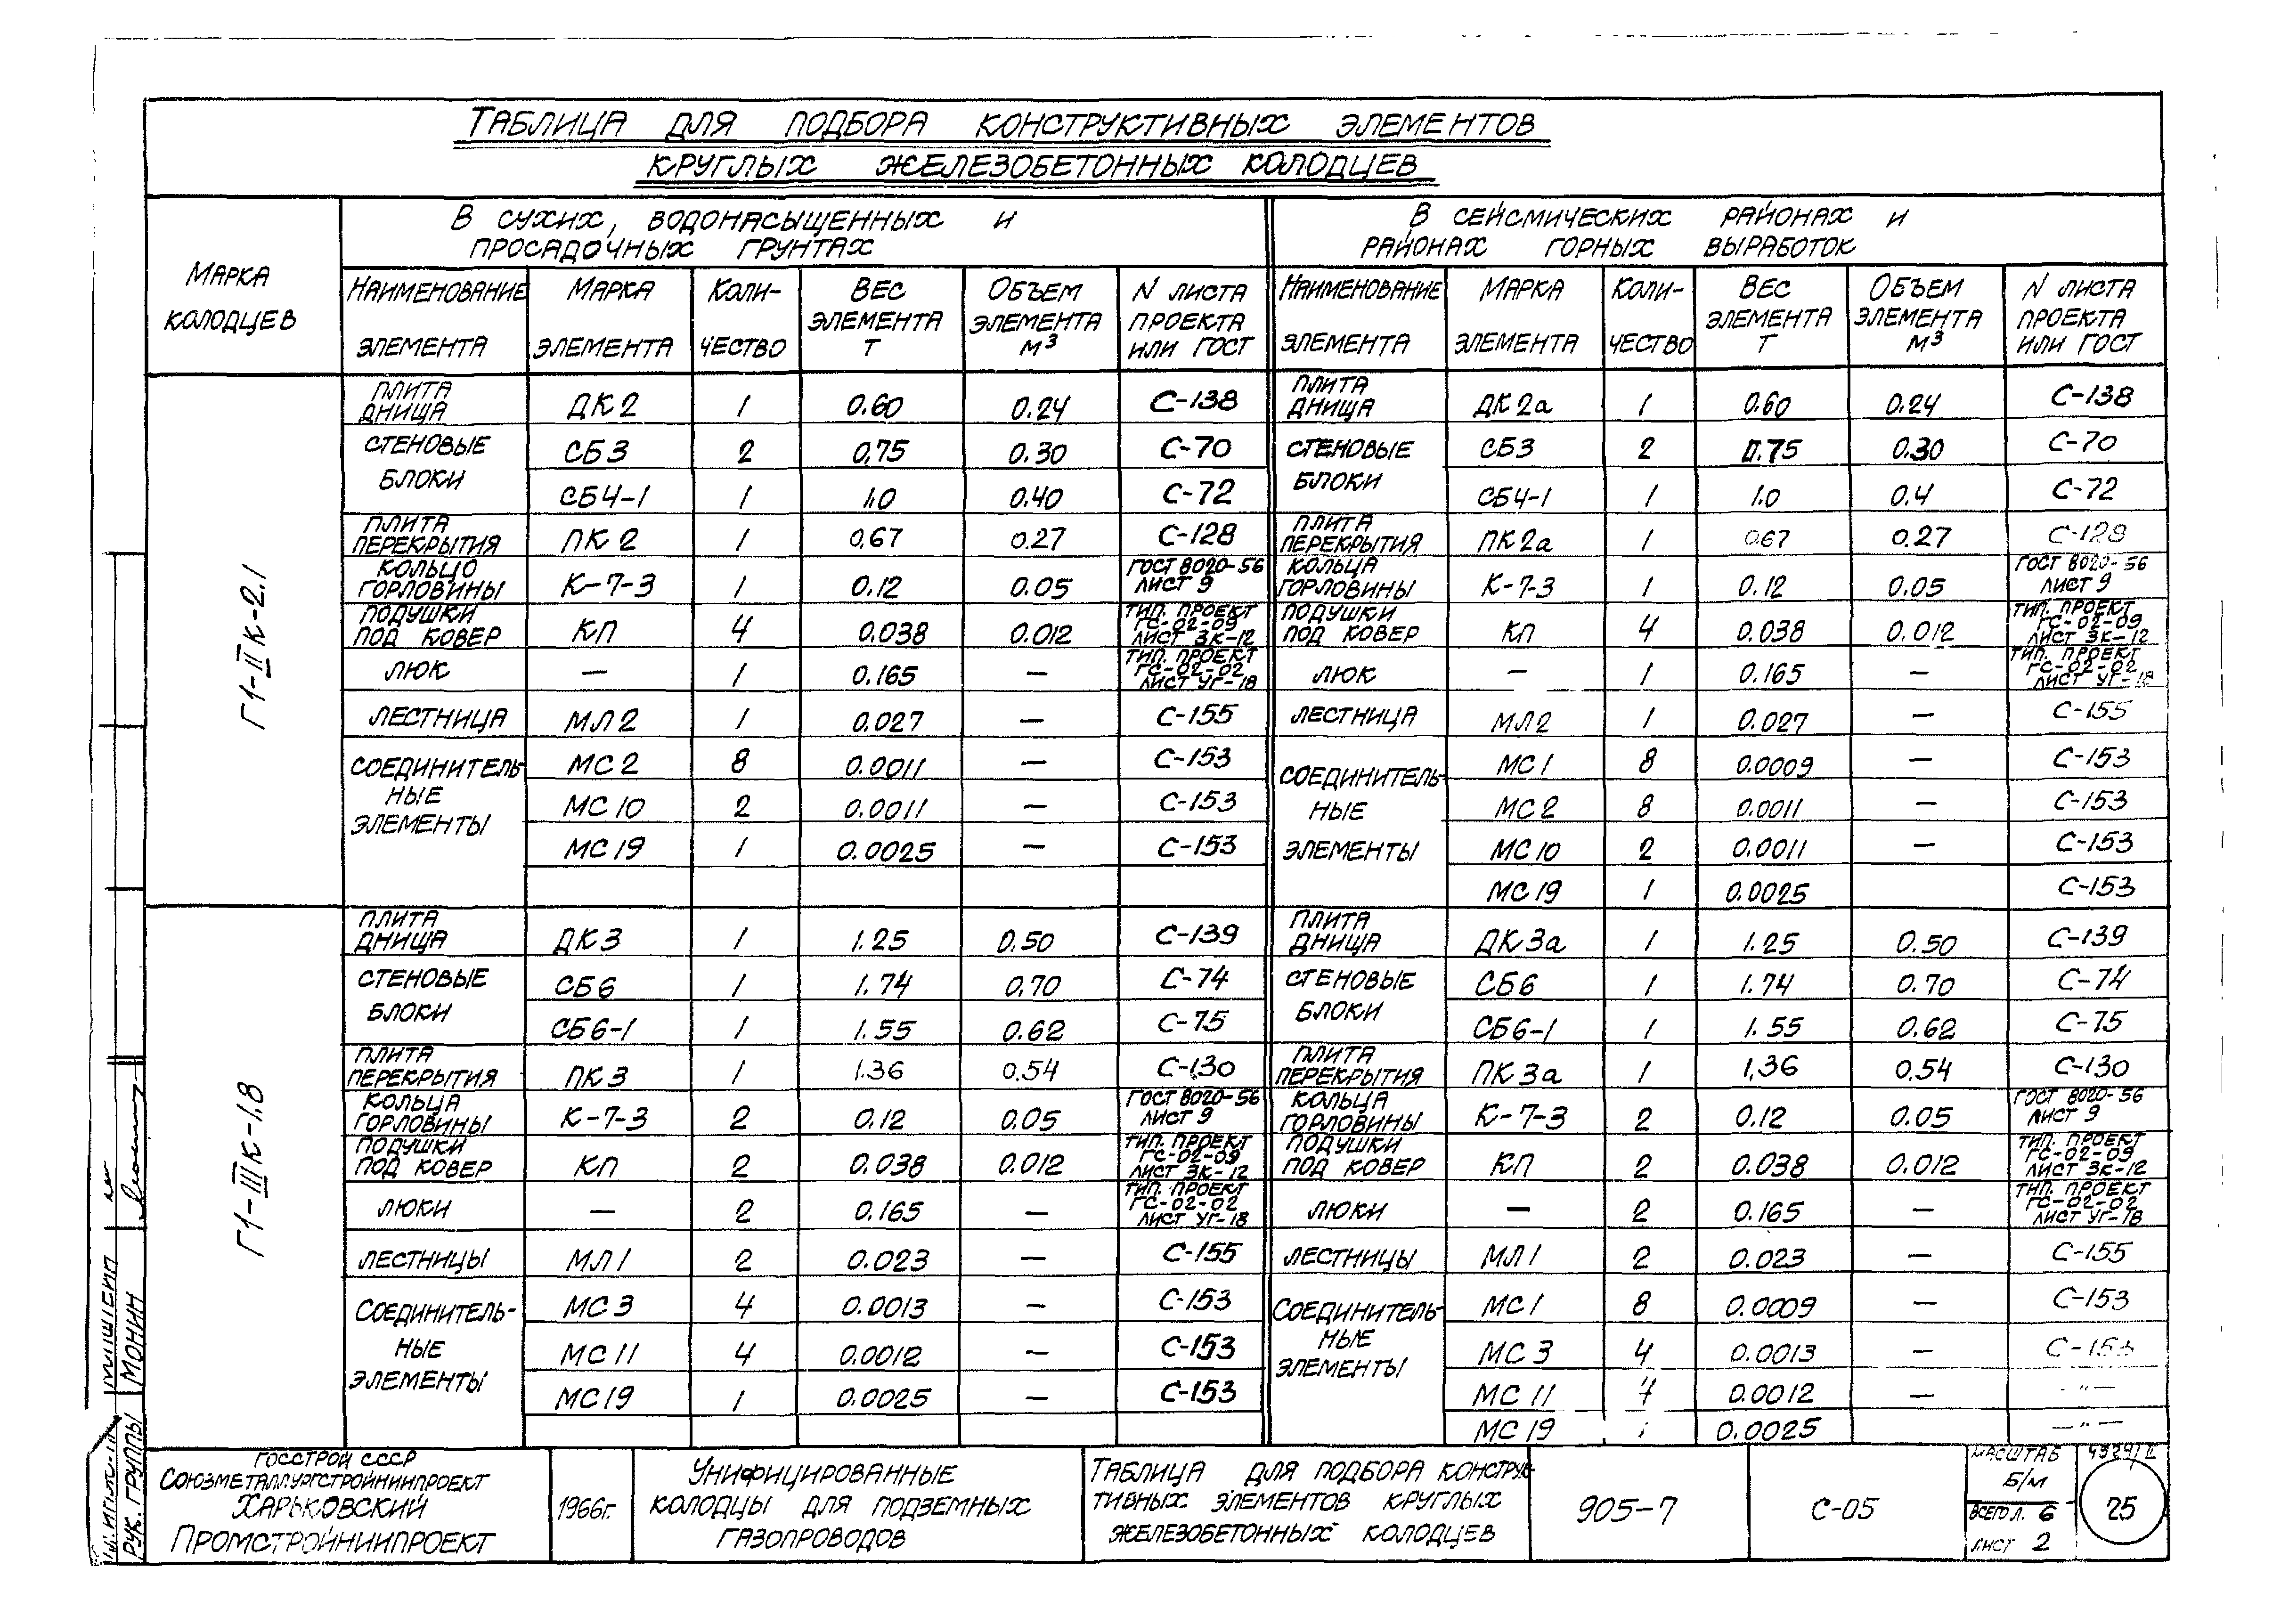 ТАБЛИЦА ДЛЯ ПОДБОРА КОНСТРУКТИВНЫХ ЭЛЕМЕНТОВ
КРУГЛЫХ ЖЕЛЕЗОБЕТОННЫХ КОЛОДЦЕВ
МАРКА КОЛОДЦЕВ
В СУХИХ, ВОДОНАСЫЩЕННЫХ И ПРОСАДОЧНЫХ ГРУНТАХ
В СЕЙСМИЧЕСКИХ РАЙОНАХ И РАЙОНАХ ГОРНЫХ ВЫРАБОТОК
НАИМЕНОВАНИЕ ЭЛЕМЕНТА МАРКА ЭЛЕМЕНТА КОЛИ-ЧЕСТВО ВЕС ЭЛЕМЕНТА Т ОБЪЕМ ЭЛЕМЕНТА М³ N ЛИСТА ПРОЕКТА ИЛИ ГОСТ НАИМЕНОВАНИЕ ЭЛЕМЕНТА МАРКА ЭЛЕМЕНТА КОЛИ-ЧЕСТВО ВЕС ЭЛЕМЕНТА Т ОБЪЕМ ЭЛЕМЕНТА М³ N ЛИСТА ПРОЕКТА ИЛИ ГОСТ
Г1-IIК-2.1
ПЛИТА ДНИЩА ДК2 1 0.60 0.24 С-138 ПЛИТА ДНИЩА ДК2а 1 0.60 0.24 С-138
СТЕНОВЫЕ БЛОКИ СБ3 2 0,75 0.30 С-70 СТЕНОВЫЕ БЛОКИ СБ3 2 0.75 0.30 С-70
СБ4-1 1 1.0 0.40 С-72 СБ4-1 1 1.0 0.4 С-72
ПЛИТА ПЕРЕКРЫТИЯ ПК2 1 0,67 0.27 С-128 ПЛИТА ПЕРЕКРЫТИЯ ПК2а 1 0.67 0.27 С-128
КОЛЬЦО ГОРЛОВИНЫ К-7-3 1 0.12 0.05 ГОСТ 8020-56 ЛИСТ 9 КОЛЬЦА ГОРЛОВИНЫ К-7-3 1 0.12 0.05 ГОСТ 8020-56 ЛИСТ 9
ПОДУШКИ ПОД КОВЕР КП 4 0.038 0.012 ТИП. ПРОЕКТ ГС-02-09 ЛИСТ ЗК-12 ПОДУШКИ ПОД КОВЕР КП 4 0.038 0.012 ТИП. ПРОЕКТ ГС-02-09 ЛИСТ ЗК-12
ЛЮК — 1 0.165 — ТИП. ПРОЕКТ ГС-02-02 ЛИСТ УГ-18 ЛЮК — 1 0.165 — ТИП. ПРОЕКТ ГС-02-02 ЛИСТ УГ-18
ЛЕСТНИЦА МЛ2 1 0.027 — С-155 ЛЕСТНИЦА МЛ2 1 0.027 — С-155
СОЕДИНИТЕЛЬ-НЫЕ ЭЛЕМЕНТЫ МС2 8 0.0011 — С-153 СОЕДИНИТЕЛЬ-НЫЕ ЭЛЕМЕНТЫ МС1 8 0.0009 — С-153
МС10 2 0.0011 — С-153 МС2 8 0.0011 — С-153
МС19 1 0.0025 — С-153 МС10 2 0.0011 — С-153
МС19 1 0.0025 С-153
Г1-IIIК-1.8
ПЛИТА ДНИЩА ДК3 1 1.25 0.50 С-139 ПЛИТА ДНИЩА ДК3а 1 1.25 0.50 С-139
СТЕНОВЫЕ БЛОКИ СБ6 1 1.74 0,70 С-74 СТЕНОВЫЕ БЛОКИ СБ6 1 1.74 0.70 С-74
СБ6-1 1 1.55 0.62 С-75 СБ6-1 1 1.55 0.62 С-75
ПЛИТА ПЕРЕКРЫТИЯ ПК3 1 1.36 0.54 С-130 ПЛИТА ПЕРЕКРЫТИЯ ПК3а 1 1,36 0.54 С-130
КОЛЬЦА ГОРЛОВИНЫ К-7-3 2 0.12 0.05 ГОСТ 8020-56 ЛИСТ 9 КОЛЬЦА ГОРЛОВИНЫ К-7-3 2 0.12 0.05 ГОСТ 8020-56 ЛИСТ 9
ПОДУШКИ ПОД КОВЕР КП 2 0.038 0.012 ТИП. ПРОЕКТ ГС-02-09 ЛИСТ ЗК-12 ПОДУШКИ ПОД КОВЕР КП 2 0.038 0.012 ТИП. ПРОЕКТ ГС-02-09 ЛИСТ ЗК-12
ЛЮКИ — 2 0.165 — ТИП. ПРОЕКТ ГС-02-02 ЛИСТ УГ-18 ЛЮКИ — 2 0.165 — ТИП. ПРОЕКТ ГС-02-02 ЛИСТ УГ-18
ЛЕСТНИЦЫ МЛ1 2 0.023 — С-155 ЛЕСТНИЦЫ МЛ1 2 0.023 — С-155
СОЕДИНИТЕЛЬ-НЫЕ ЭЛЕМЕНТЫ МС3 4 0.0013 — С-153 СОЕДИНИТЕЛЬ-НЫЕ ЭЛЕМЕНТЫ МС1 8 0.0009 — С-153
МС11 4 0.0012 — С-153 МС3 4 0.0013 — С-153
МС19 1 0.0025 — С-153 МС11 4 0.0012 — —"—
МС19 1 0.0025 —"—
РУК. ГРУППЫ МОНИН
ГОССТРОЙ СССР
СОЮЗМЕТАЛЛУРГСТРОЙНИИПРОЕКТ
ХАРЬКОВСКИЙ
ПРОМСТРОЙНИИПРОЕКТ
1966г.
УНИФИЦИРОВАННЫЕ
КОЛОДЦЫ ДЛЯ ПОДЗЕМНЫХ
ГАЗОПРОВОДОВ
ТАБЛИЦА ДЛЯ ПОДБОРА КОНСТРУК-
ТИВНЫХ ЭЛЕМЕНТОВ КРУГЛЫХ
ЖЕЛЕЗОБЕТОННЫХ КОЛОДЦЕВ
905-7
С-05
МАСШТАБ
Б/М
ВСЕГО Л. 6
ЛИСТ 2
25